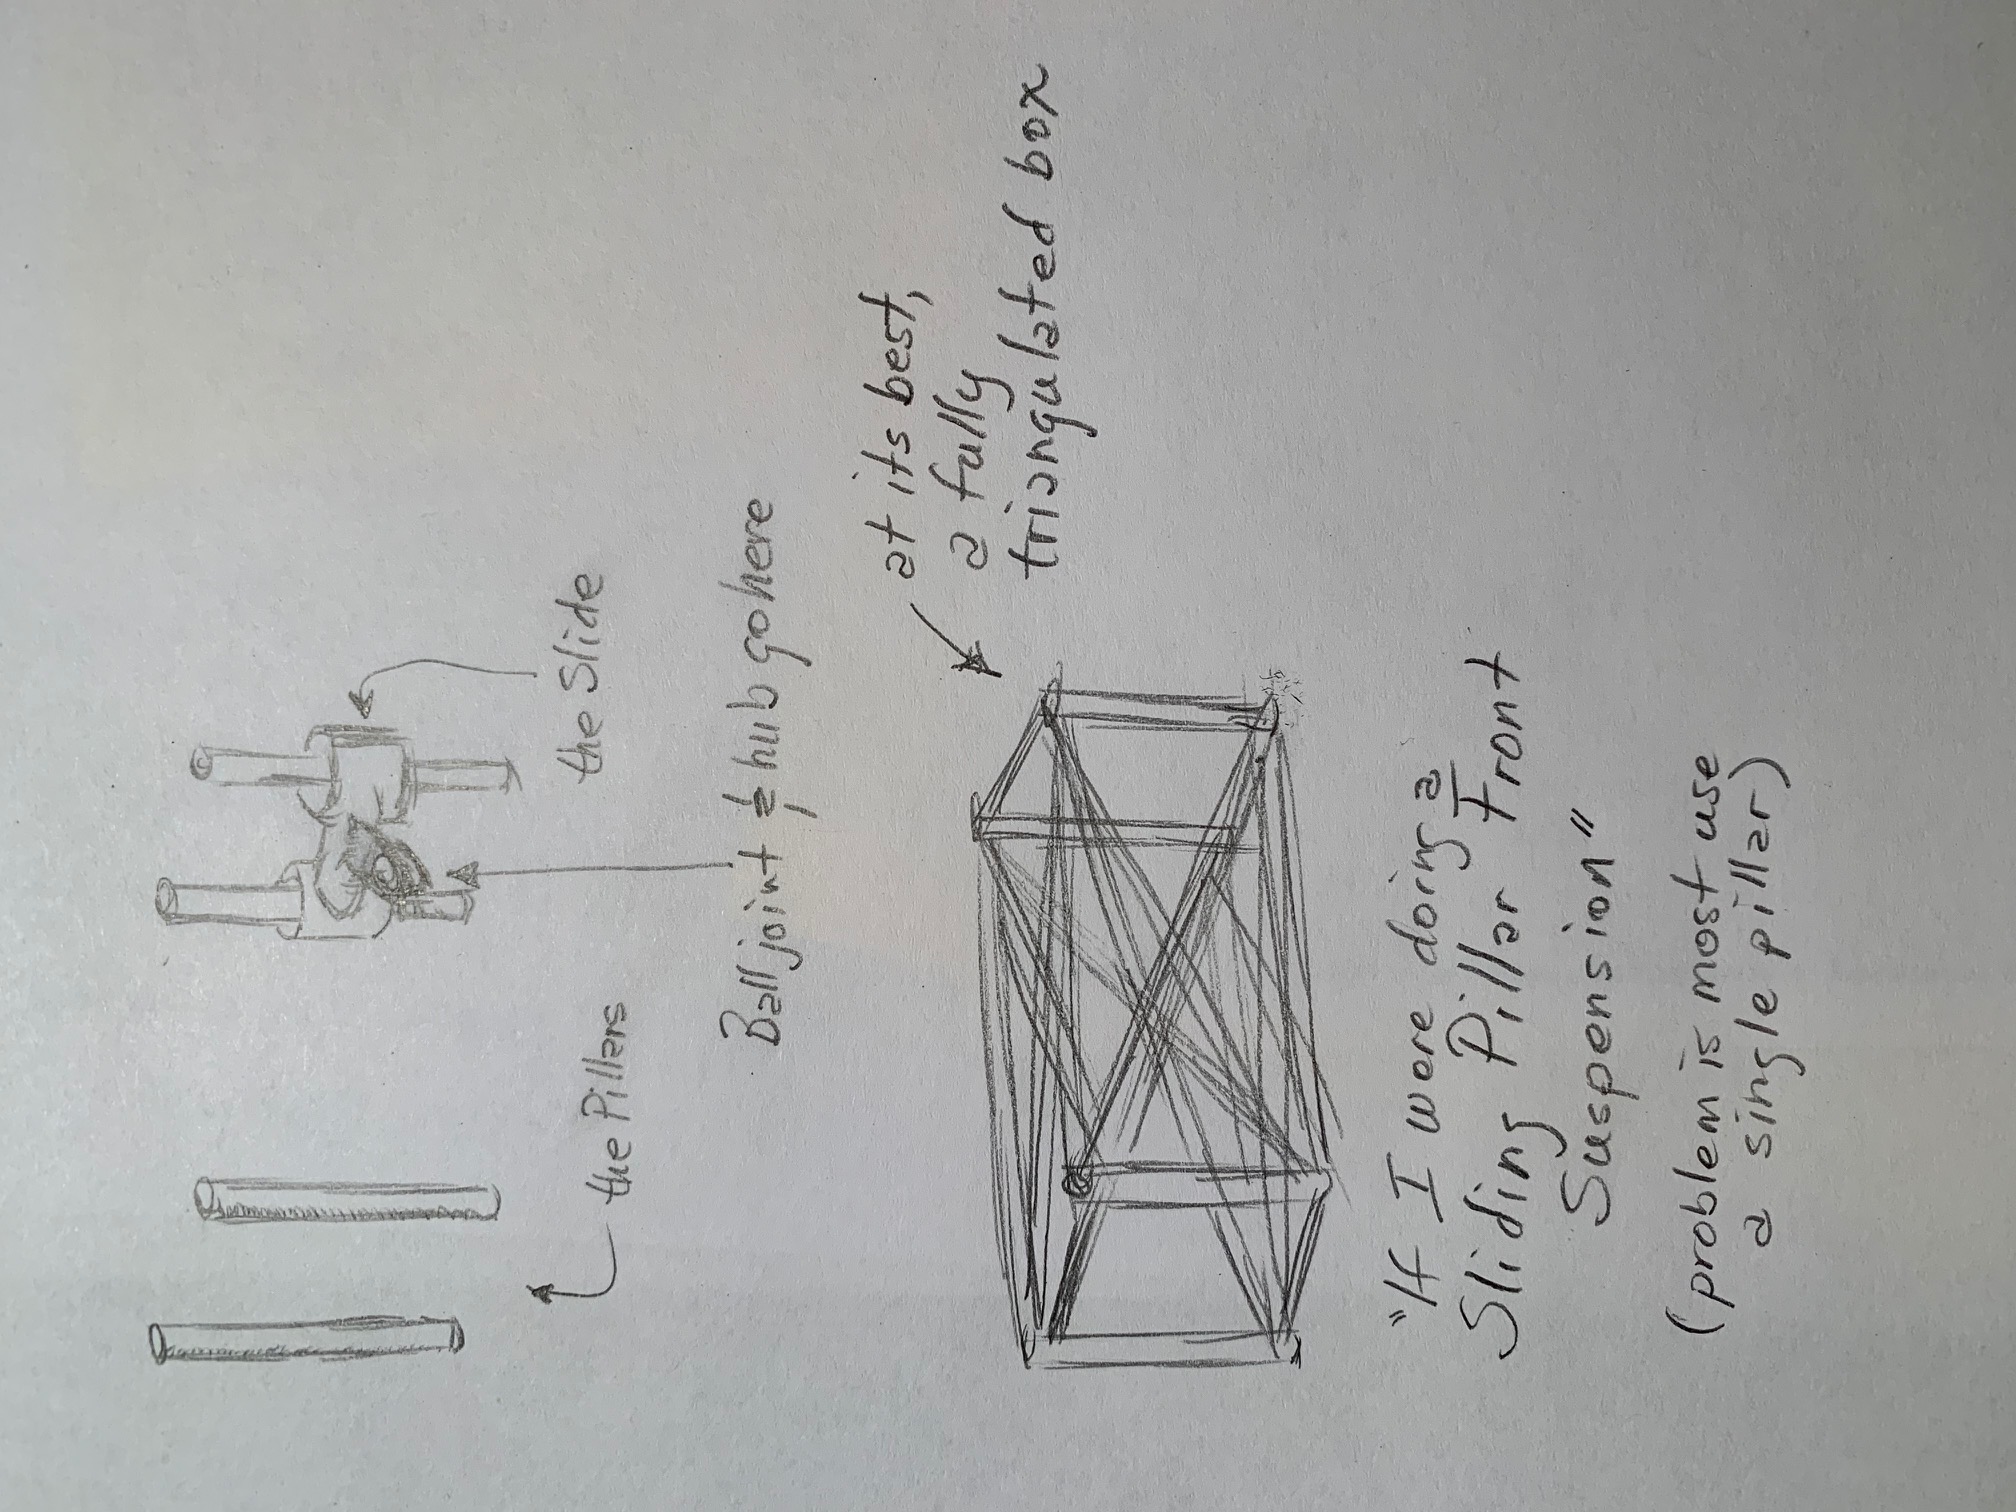 the Pillars
the Slide
Ball joint + hub go here
at its best,
a fully
triangulated box
"If I were doing a
Sliding Pillar Front
Suspension"
(problem is most use
a single pillar)